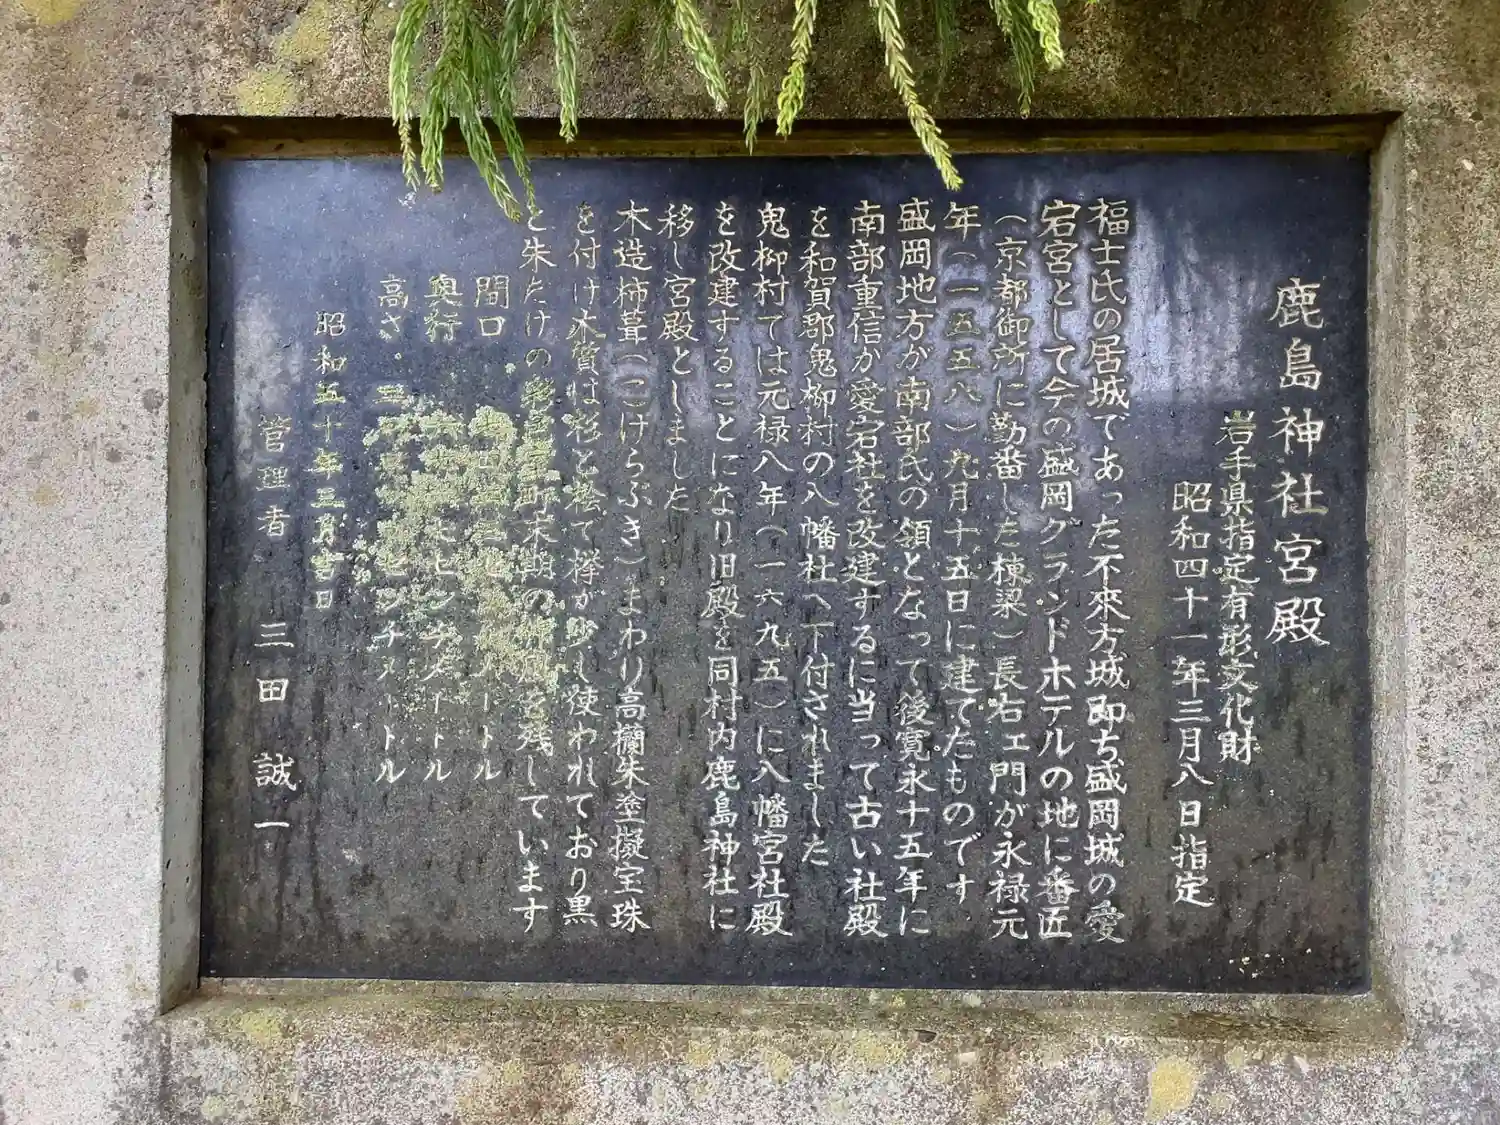 鹿島神社宮殿
岩手県指定有形文化財
昭和四十一年三月八日指定
福士氏の居城であった不來方城即ち盛岡城の愛
宕宮として今の盛岡グランドホテルの地に番匠
（京都御所に勤番した棟梁）長右ェ門が永禄元
年（一五五八）九月十五日に建てたものです
盛岡地方が南部氏の領となって後寛永十五年に
南部重信が愛宕社を改建するに当って古い社殿
を和賀郡鬼柳村の八幡社へ下付されました
鬼柳村では元禄八年（一六九五）に八幡宮社殿
を改建することになり旧殿を同村内鹿島神社に
移し宮殿としました
木造柿葺（こけらぶき）まわり高欄朱塗擬宝珠
を付け木質は杉と桧で欅が少し使われており黒
と朱だけの 町末期の作風を残しています
間口 メートル
奥行 センチメートル
高さ センチメートル
昭和五十年三月 日
管理者 三田誠一